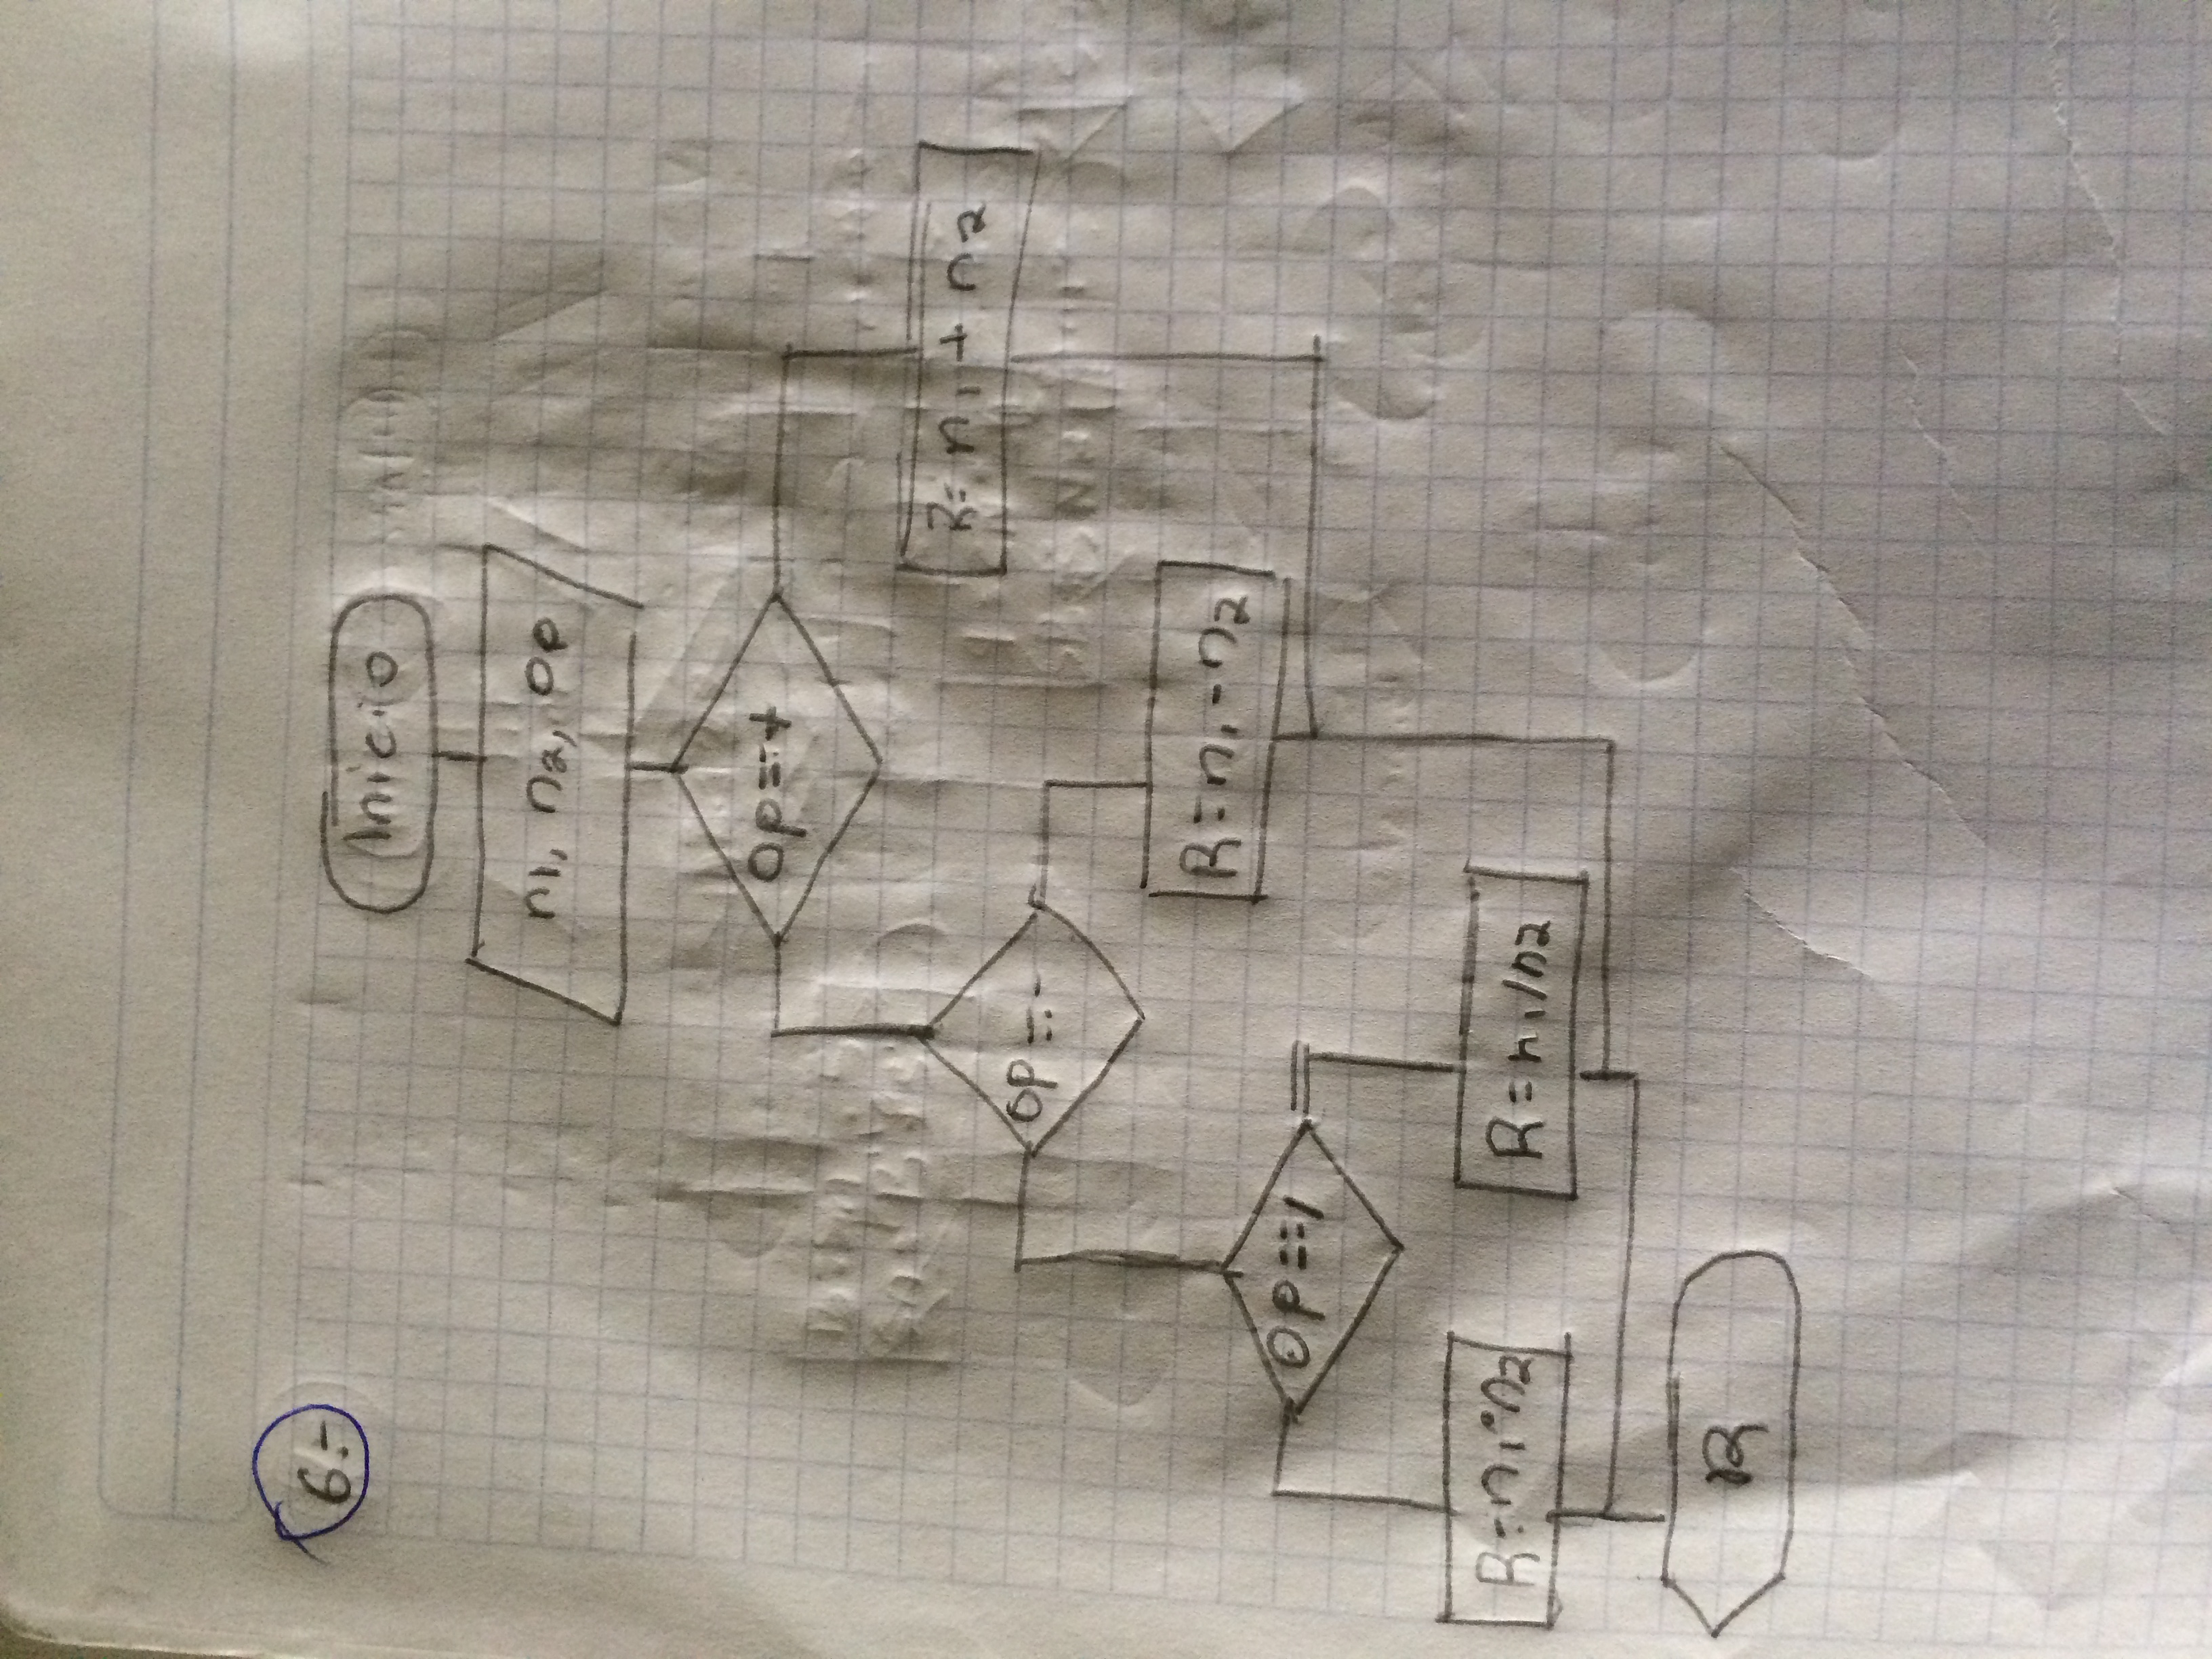 6.-
Inicio
n1, n2, Op
Op==+
R= n1 + n2
OP==-
R=n1-n2
OP==/
R=n1*n2
R=n1/n2
R